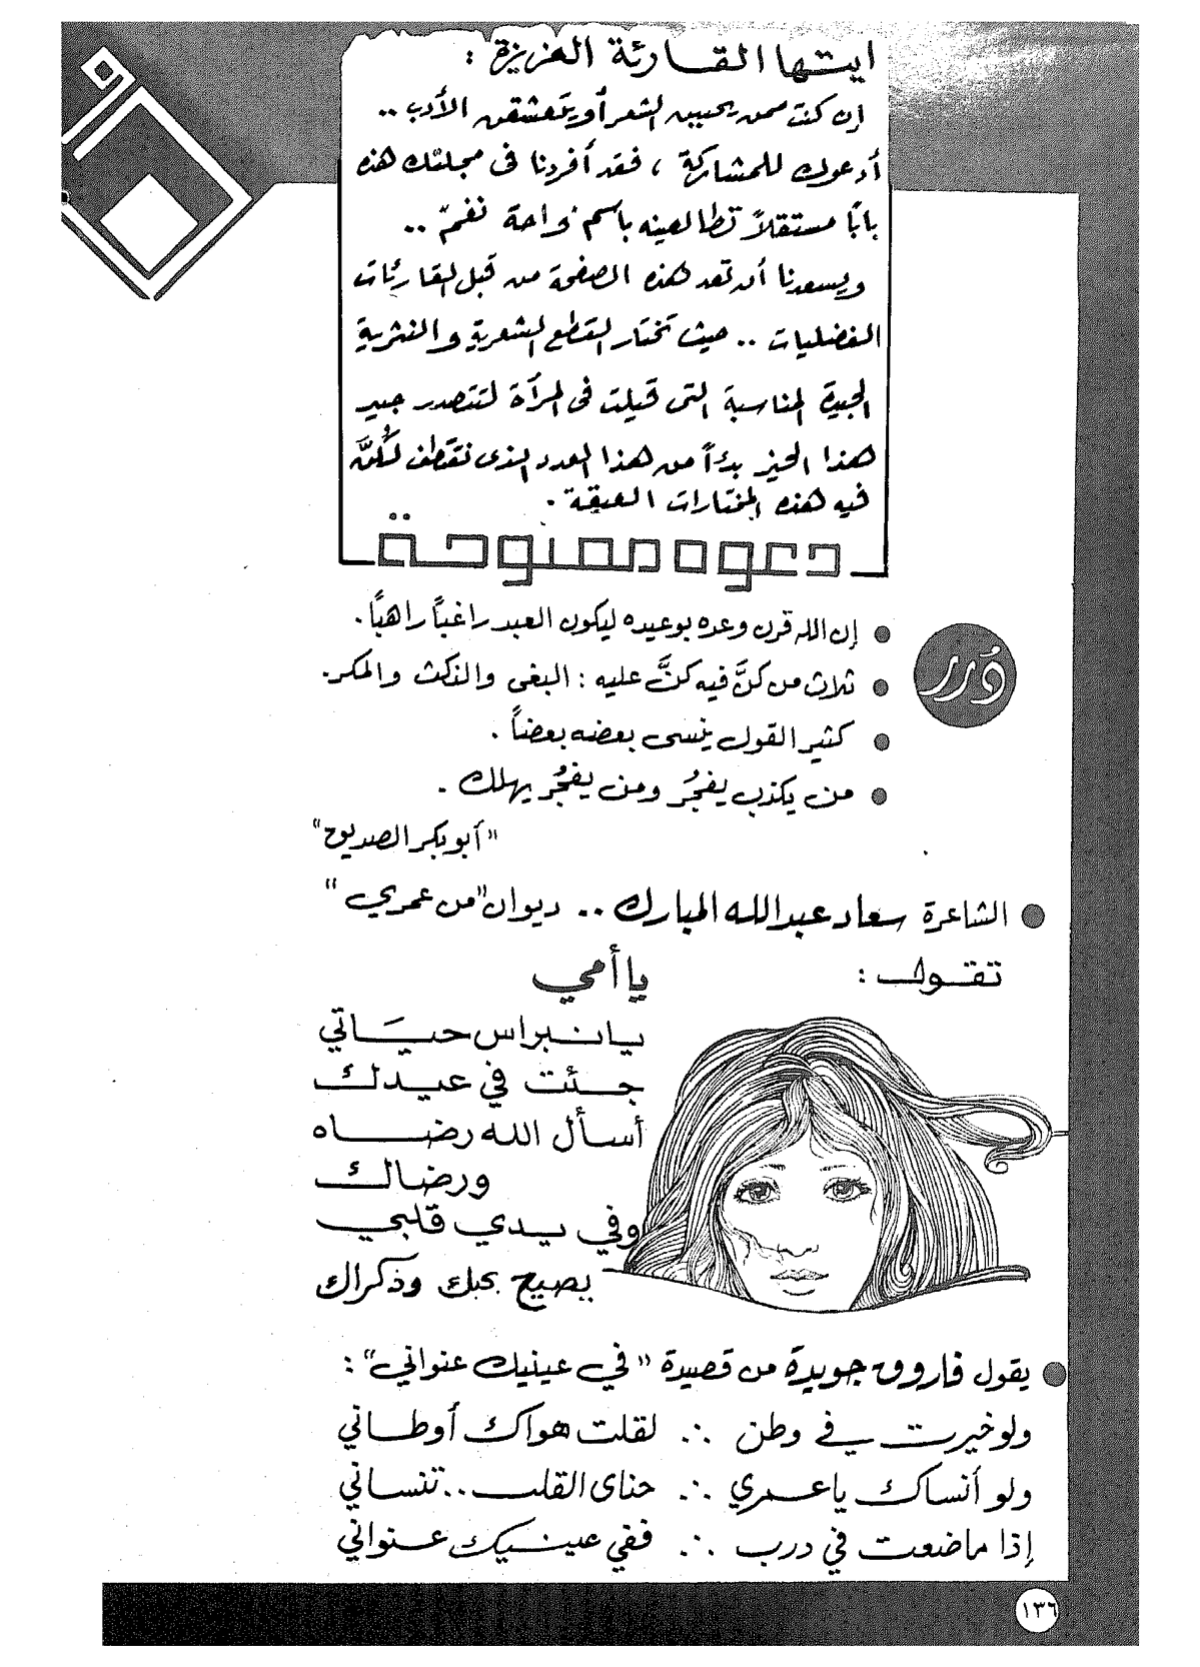 ايتها القارئة العزيزة :
إن كنت ممن يحببن الشعر أو يتعشقن الأدب ..
أدعوك للمشاركة ، فقد أفردنا في مجلتك هذه
بابًا مستقلاً تطالعينه باسم واحة نغم ..
ويسعدنا أن تعد هذه الصفحة من قبل القارئات
الفضليات .. حيث تختار القطع الشعرية والنثرية
الجيدة المناسبة التي قيلت في المرأة لتتصدر جيد
هذا الحيز بدءاً من هذا العدد الذى نقتطف لكُنَّ
فيه هذه المختارات العبقة .
دعوه مفتوحة
درر
إن الله قرن وعده بوعيده ليكون العبد راغباً راهباً .
ثلاث من كنَّ فيه كنَّ عليه : البغى والنكث والمكر .
كثير القول ينسى بعضه بعضاً .
من يكذب يفجُر ومن يفجُر يهلك .
"أبو بكر الصديق"
الشاعرة سعاد عبدالله المبارك .. ديوان "من عمري"
تقول :
يا أمي
يا نبراس حيَاتي
جئت في عيدك
أسأل الله رضاه
ورضاك
وفي يدي قلبي
يصيح بحبك وذكراك
يقول فاروق جويدة من قصيدة "في عينيك عنواني" :
ولو خيرت في وطن ∴ لقلت هواك أوطاني
ولو أنساك يا عمري ∴ حناى القلب .. تنساني
إذا ما ضعت في درب ∴ ففي عينيك عنواني
١٣٦